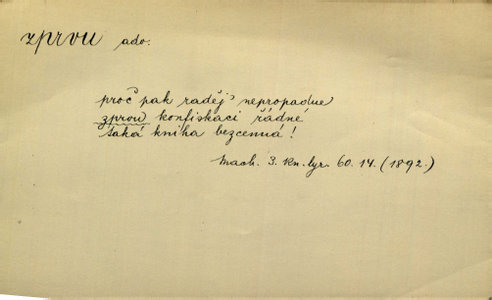 zprvu adv.
proč pak raděj' nepropadne
zprvu konfiskaci řádné
šaká kniha bezcenná!
Mach. 3. Kn. lyr. 60. 14. (1892.)